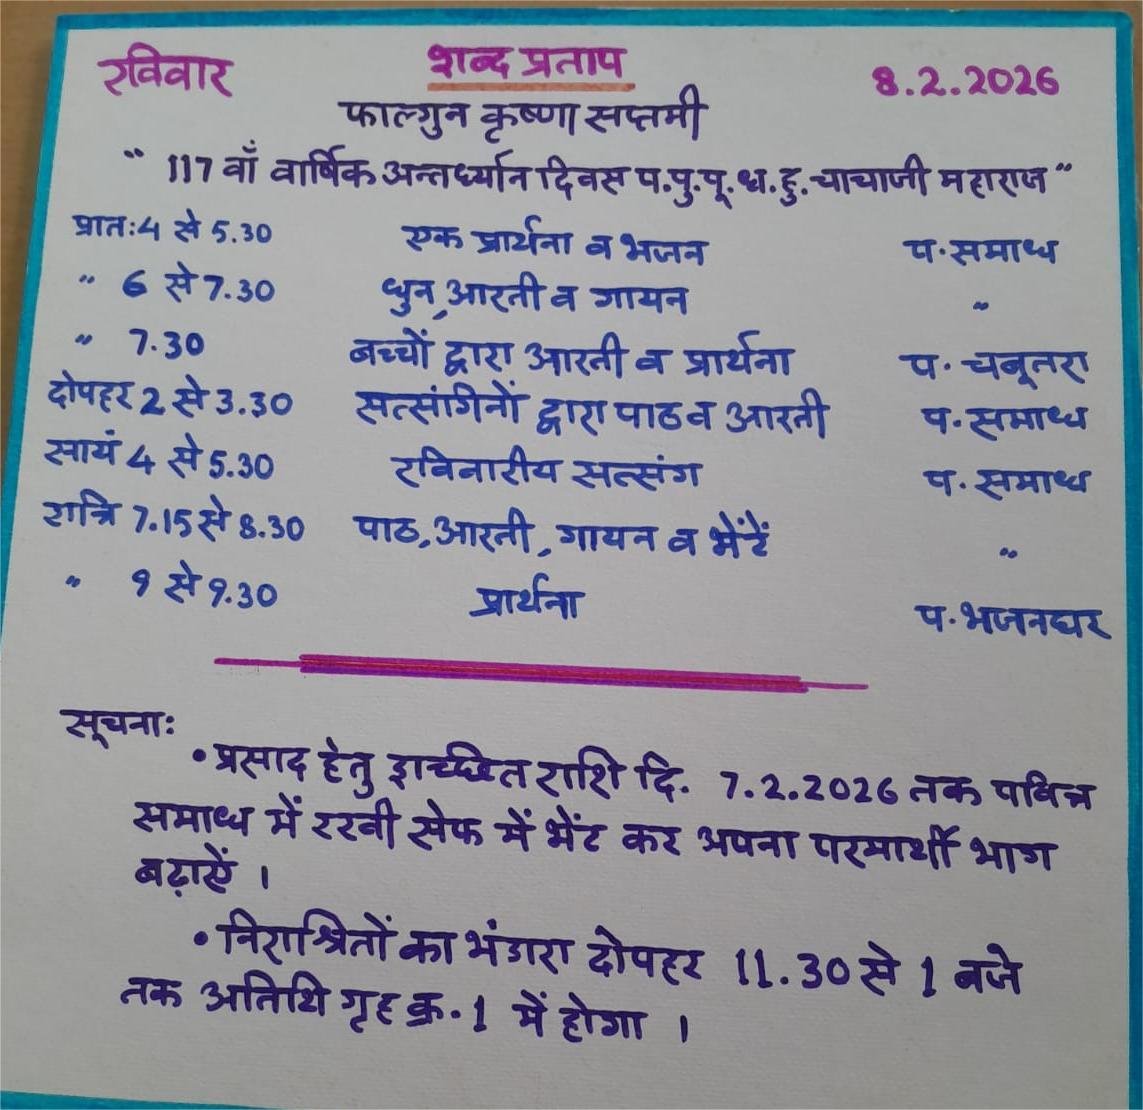 रविवार शब्द प्रताप 8.2.2026
फाल्गुन कृष्णा सप्तमी
" 117 वाँ वार्षिक अन्तर्ध्यान दिवस प.पु.पू.ध.हु.चाचाजी महाराज "
प्रातः4 से 5.30 एक प्रार्थना व भजन प.समाध
" 6 से 7.30 धुन,आरती व गायन "
" 7.30 बच्चों द्वारा आरती व प्रार्थना प. चबूतरा
दोपहर 2 से 3.30 सत्संगिनों द्वारा पाठ व आरती प.समाध
सायं 4 से 5.30 रविवारीय सत्संग प.समाध
रात्रि 7.15 से 8.30 पाठ,आरती,गायन व भेंटें "
" 9 से 9.30 प्रार्थना प.भजनघर
सूचनाः
•प्रसाद हेतु इच्छित राशि दि. 7.2.2026 तक पवित्र
समाध में रखी सेफ में भेंट कर अपना परमार्थी भाग
बढ़ाऐं ।
•निराश्रितों का भंडारा दोपहर 11.30 से 1 बजे
तक अतिथि गृह क्र.1 में होगा ।